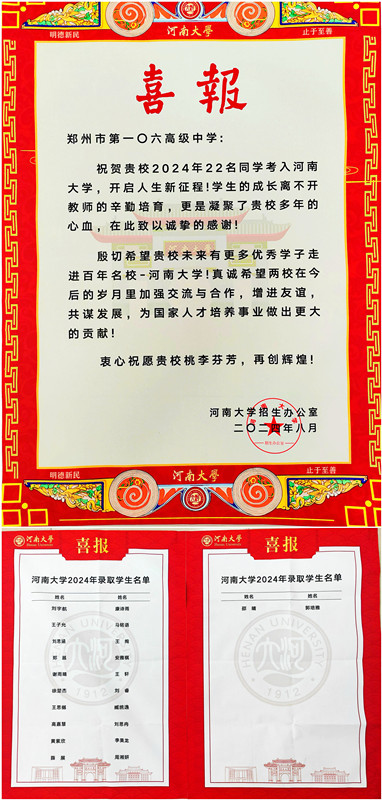 明德新民
河南大學
止于至善
喜報
郑州市第一〇六高级中学:
祝贺贵校2024年22名同学考入河南
大学，开启人生新征程!学生的成长离不开
教师的辛勤培育，更是凝聚了贵校多年的
心血，在此致以诚挚的感谢!
殷切希望贵校未来有更多优秀学子走
进百年名校-河南大学!真诚希望两校在今
后的岁月里加强交流与合作，增进友谊，
共谋发展，为国家人才培养事业做出更大
的贡献!
衷心祝愿贵校桃李芬芳，再创辉煌!
河南大学招生办公室
二〇二四年八月
明德新民
河南大學
止于至善
河南大學
Henan University
喜报
河南大学2024年录取学生名单
姓名 姓名
刘宇航 康诗雨
王子允 马铭语
王梅
谢雨晴 王轩
徐楚杰 刘睿
王思颖
刘思冉
黄紫欣 李英龙
周湘妍
HENAN UNIVERSITY
1912
河南大學
Henan University
喜报
河南大学2024年录取学生名单
姓名 姓名
郭培雅
HENAN UNIVERSITY
1912